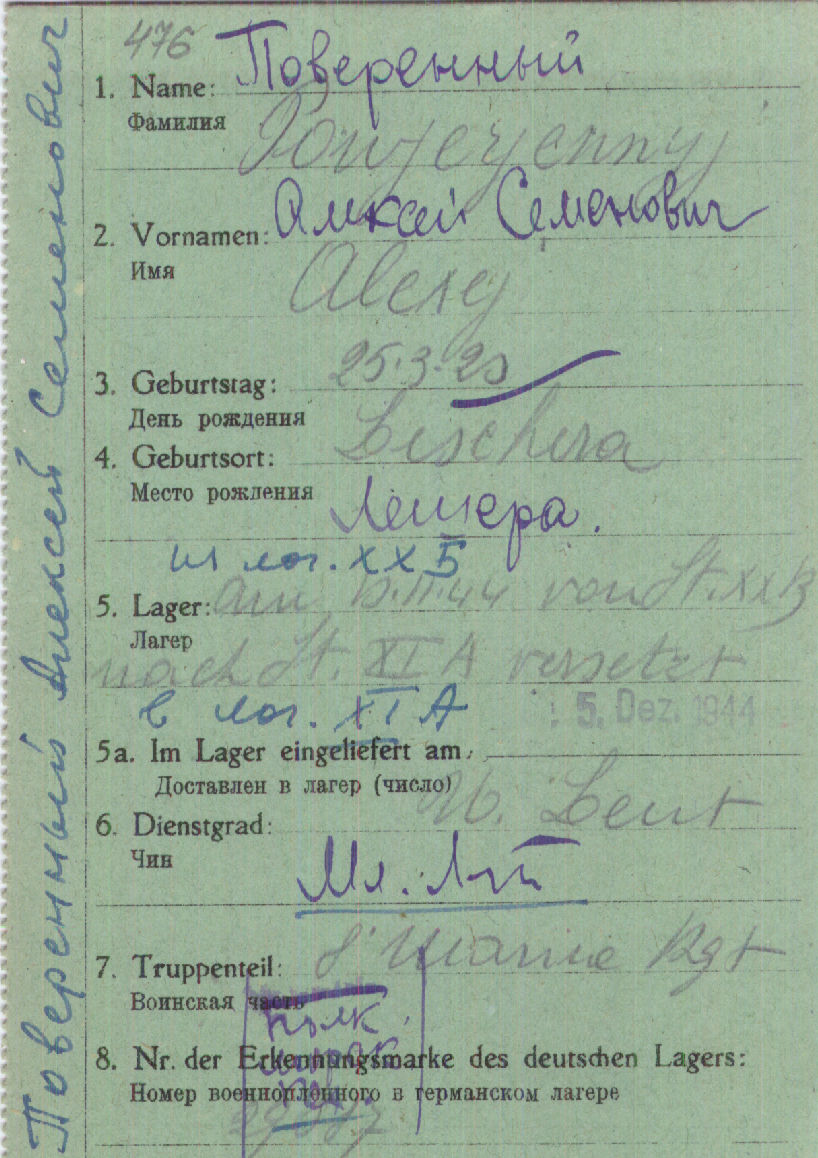 Поверенный Алексей Семенович
476
1. Name: Поверенный
Фамилия
Powjerjenny
2. Vornamen: Алексей Семенович
Имя
Alexej
3. Geburtstag: 25.3.20
День рождения
4. Geburtsort: Leschera
Место рождения
Лешера.
из лаг. XX Б
5. Lager: am 11.44 von St. XX B
Лагер
nach St. XI A versetzt
в лаг. XI A
5. Dez. 1944
5a. Im Lager eingeliefert am:
Доставлен в лагер (число)
6. Dienstgrad: Leut
Чин
Мл. Л-т
7. Truppenteil: Rgt
Воинская часть
полк
8. Nr. der Erkennungsmarke des deutschen Lagers:
Номер военнопленного в германском лагере